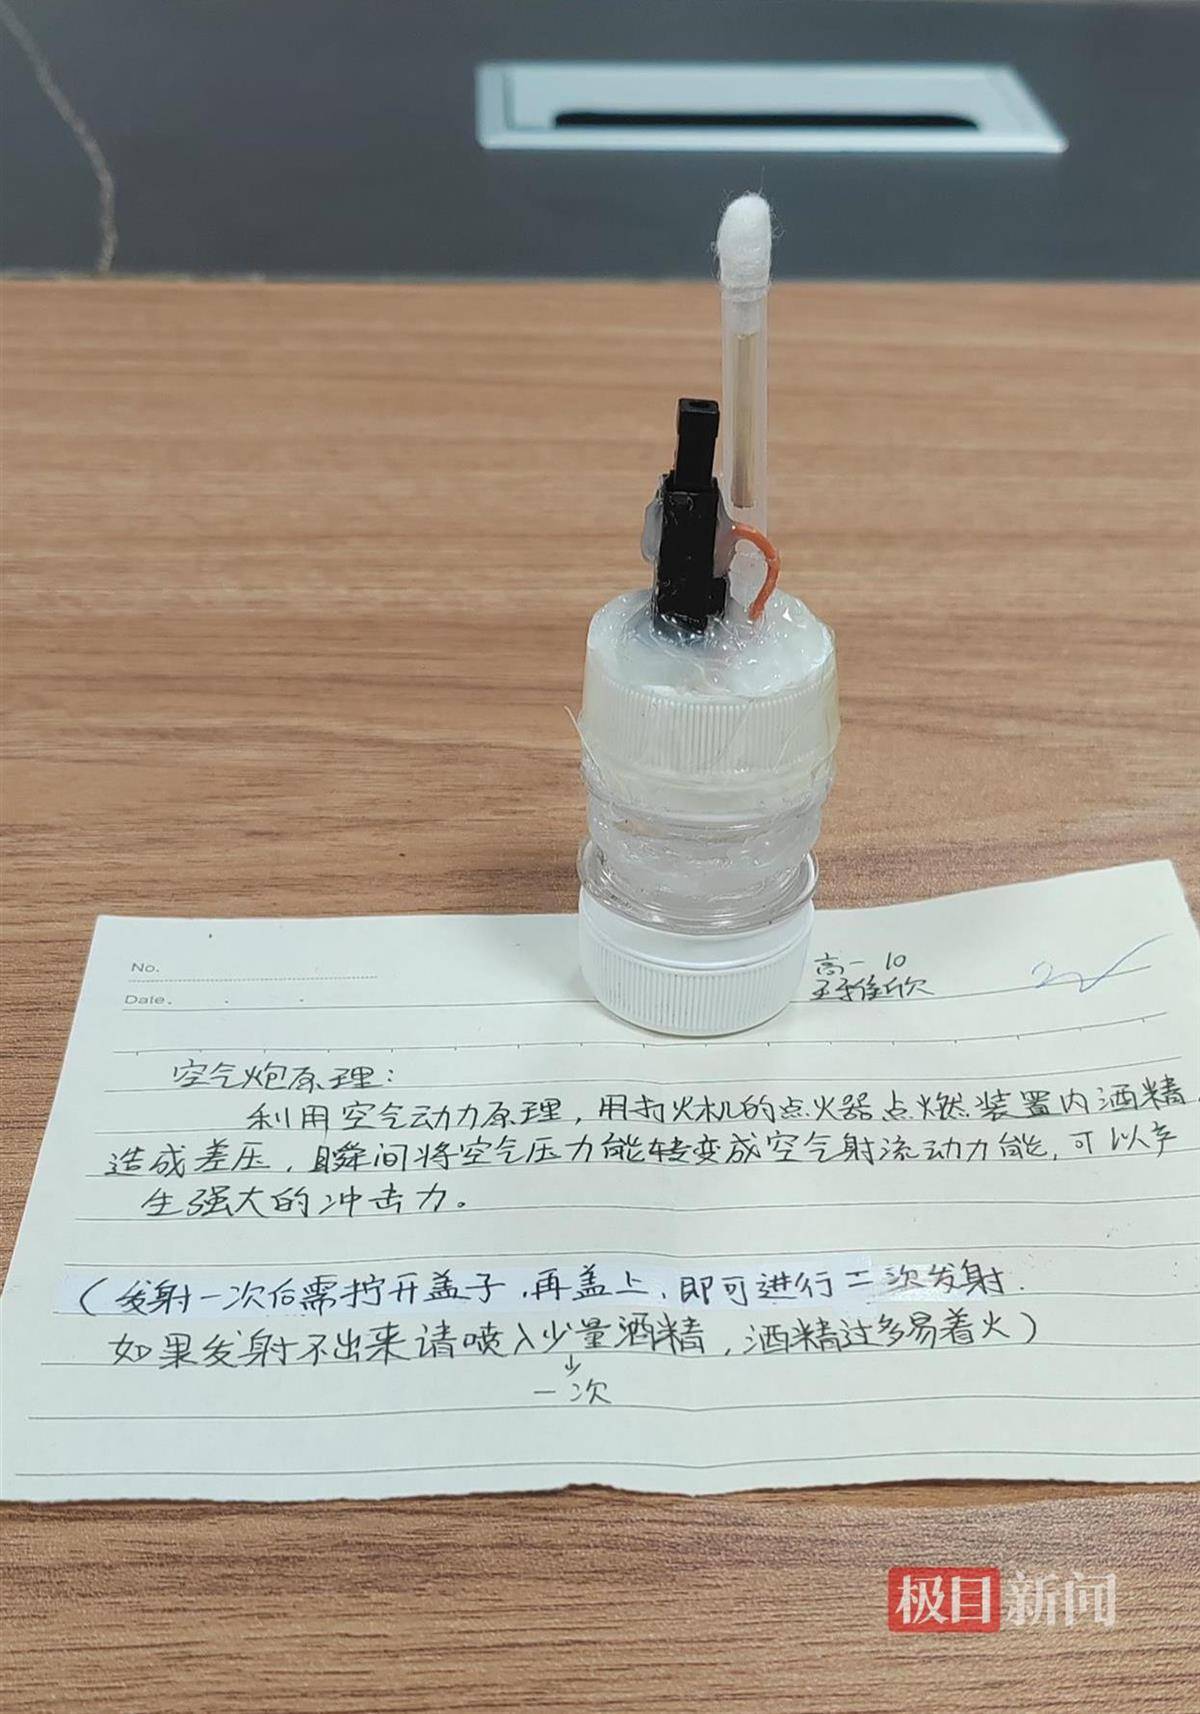 No.
Date.
高一 10
空气炮原理：
利用空气动力原理，用打火机的点火器点燃装置内酒精，
造成差压，瞬间将空气压力能转变成空气射流动力能，可以产
生强大的冲击力。
（发射一次后需拧开盖子，再盖上，即可进行二次发射.
如果发射不出来请喷入少量酒精，酒精过多易着火）
↓
一次
极目新闻